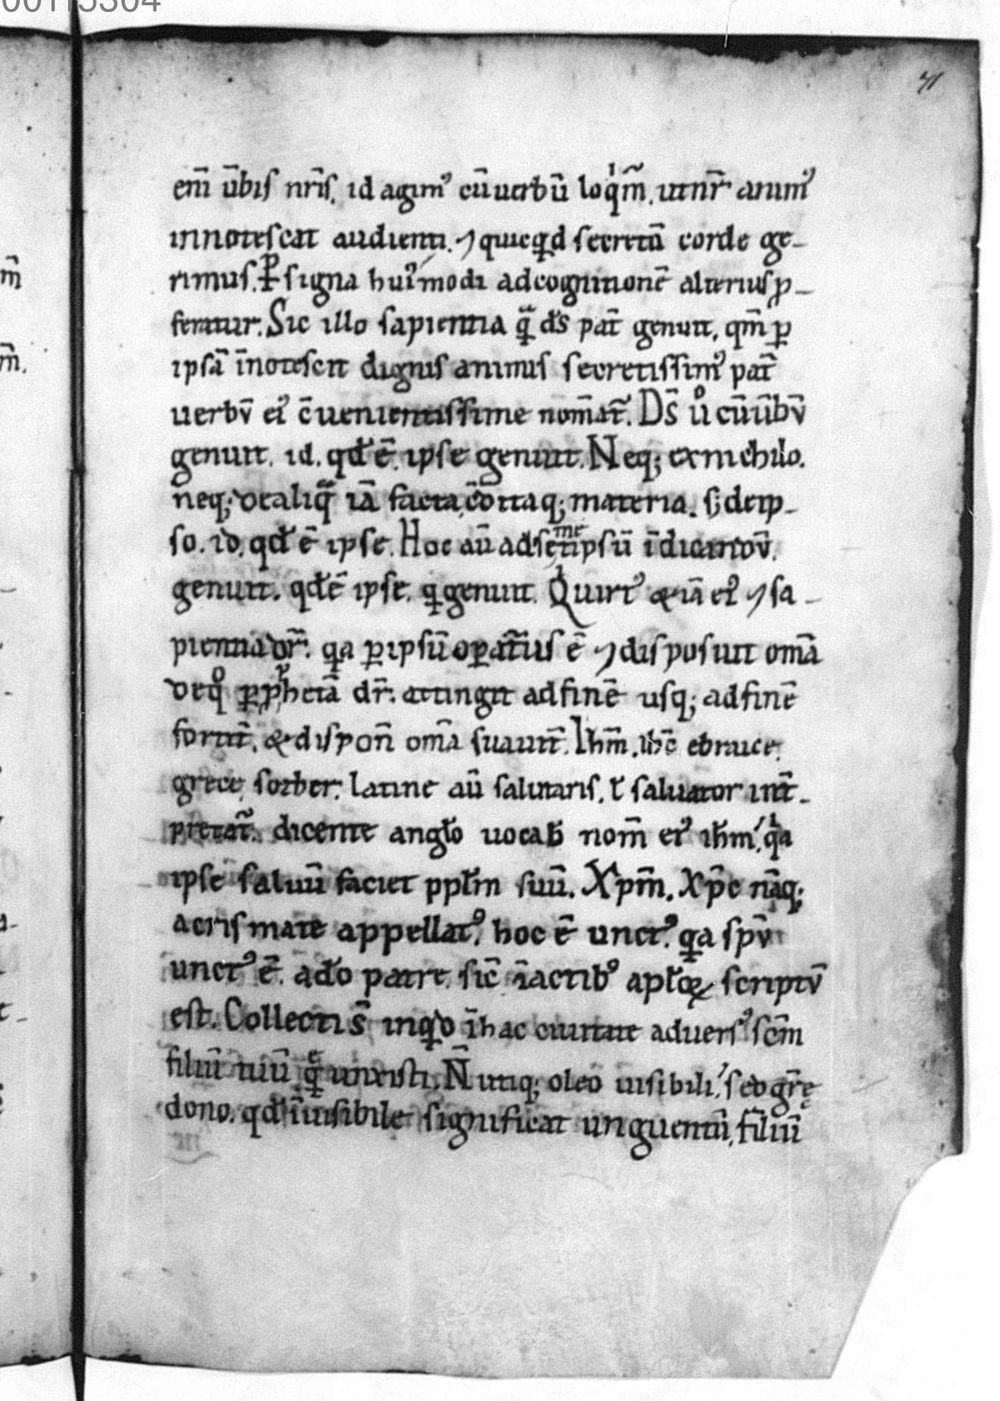 00113304
71
em̅ u̅bis nr̅is, id agimꝰ cu̅ uerbu̅ loqͥm̅, ut nr̅ animꝰ
innotescat audienti. ⁊ quicq̨d secretu̅ corde ge-
rimus. ꝑ signa huiꝰmodi ad cognitione̅ alterius ꝓ-
feratur. Sic illo sapientia qᷓ ds̅ pat̅ genuit, qm̅ ꝑ
ipsa̅ i̅notescit dignis animis secretissimꝰ pat̅
uerbu̅ eiꝰ c̅uenientissime nom̅at᷑. Ds̅ uͦ cu̅ u̅bu̅
genuit. id. qd̅ e̅. ipse genuit. Neq; ex nichilo.
neq; de aliqᷓ ia̅ facta co̅ditaq; materia. s; de ip-
so. id. qd̅ e̅ ipse. Hoc au̅ ad semetipsu̅
genuit. qd̅ e̅ ipse. q̨ genuit. Qui uirtꝰ & ia̅ eiꝰ ⁊ sa-
pientia dr̅. q̨a ꝑ ipsu̅ opatus e̅ ⁊ disposuit om̅a
de qͦ ꝑ ꝓpheta̅ dr̅. attingit ad fine̅ usq; ad fine̅
fortit̅, & dispon̅ om̅a suauit̅. Ihm̅. ih̅c ebraice.
grece sother. latine au̅ salutaris. ł saluator int̅-
pretat᷑. dicente angło uocab̅ nom̅ eiꝰ ihm̅, qͥa
ipse saluu̅ faciet ppłm suu̅. Xpm̅. Xpc̅ na̅q;
a crismate appellatꝰ. hoc e̅ unctꝰ. q̨a spu̅
unctꝰ e̅. a do̅ patre. sic̅ i̅ actibꝰ apłoꝝ scriptu̅
est. Collecti s̅ inqͥd i̅ hac ciuitate aduersꝰ sc̅m
filiu̅ tuu̅ que̅ unxisti. N̅ utiq; oleo uisibili, sed gr̅ę
dono. qd̅ i̅uisibile significat unguentu̅. filiu̅